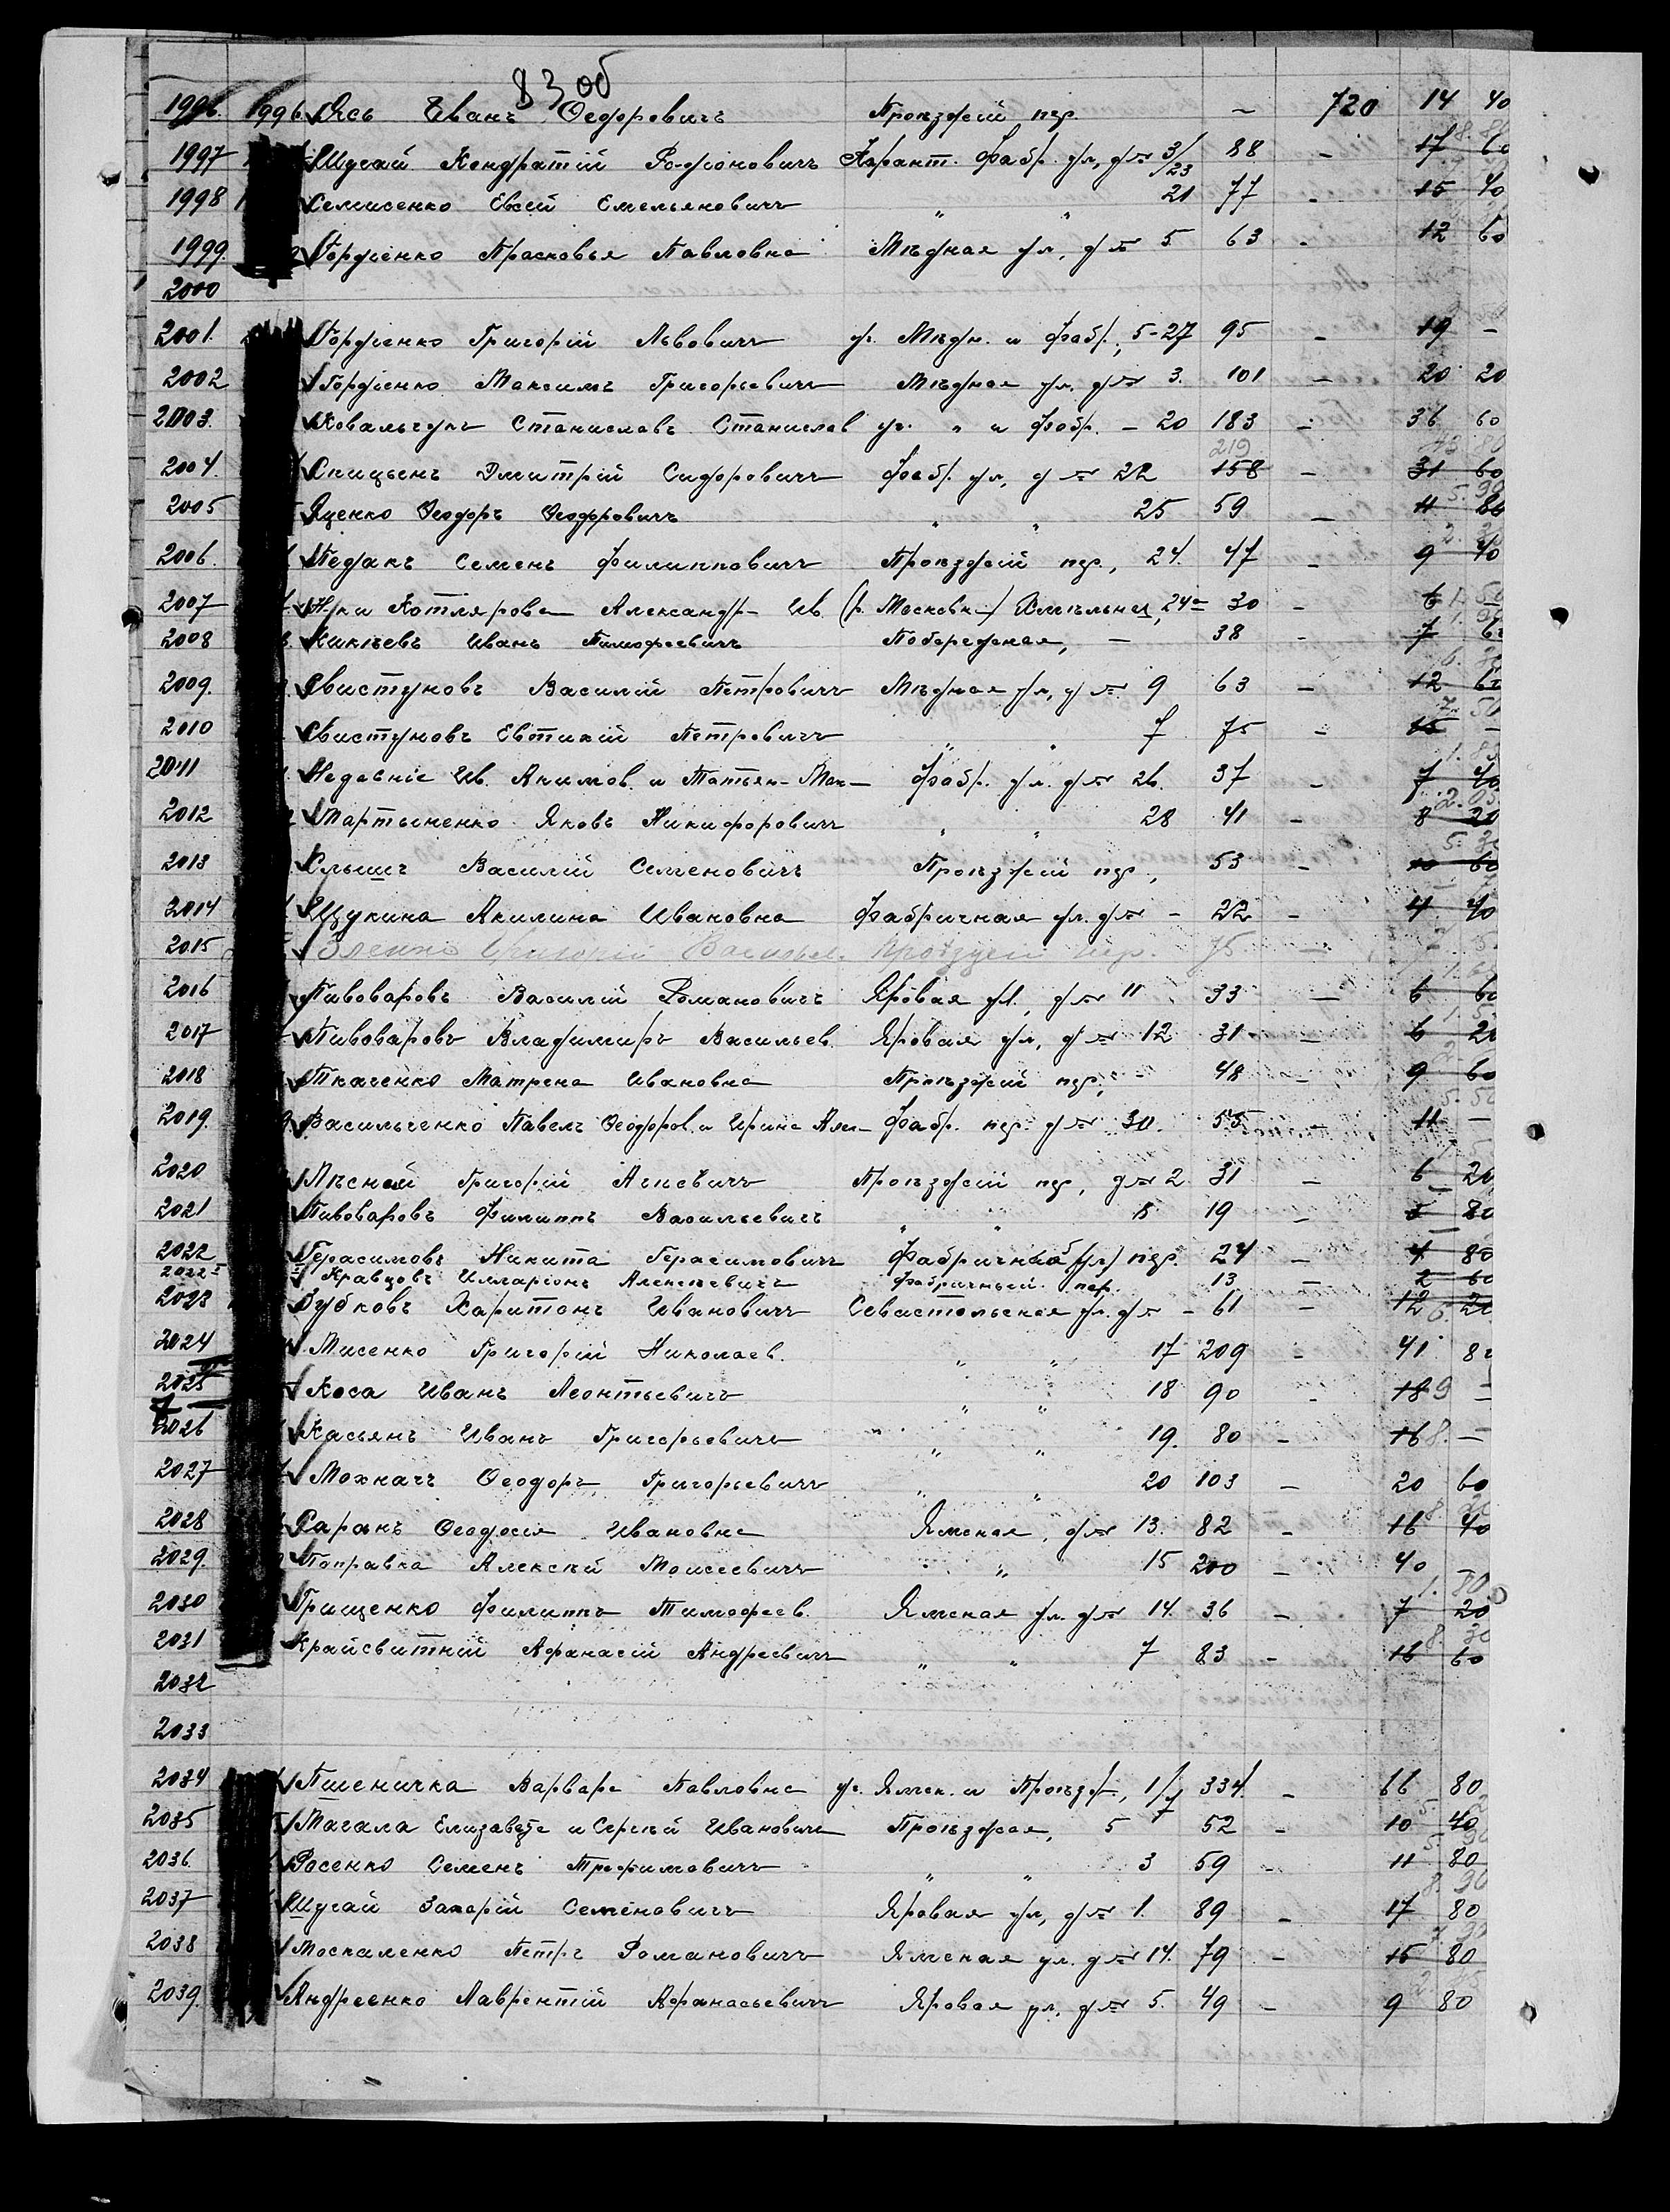 83 об
1996. 1996 Ясь Иванъ Феодоровичъ Проѣзжій пер. – 720 14 40
1997 Шугай Кондратій Родіоновичъ Карант. Фабр. ул, д № 3/23 88 – 17 60
1998 Семисенко Евсей Емельяновичъ " " 21 77 – 15 40
1999. Гордіенко Прасковья Павловна Мѣдная ул, д № 5 63 – 12 60
2000
2001. Гордіенко Григорій Львовичъ уг. Мѣдн. и Фабр., 5-27 95 – 19 –
2002 Гордіенко Максимъ Григорьевичъ Мѣдная ул. д № 3. 101 – 20 20
2003. Ковальчукъ Станиславъ Станислав уг. " и Фабр. – 20 183 – 36 60
2004. Дмитрій Сидоровичъ Фабр. ул, д № 22 219 158 – 31 60
2005 Яценко Феодоръ Феодоровичъ " " 25 59 – 11 80
2006. Педакъ Семенъ Филипповичъ Проѣзжій пер., 24. 47 – 9 40
2007 Н-ки Котлярова Александр- Ив. 24а 30 – 6 –
2008 Кикѣевъ Иванъ Тимофеевичъ Побережная, – 38 – 7 60
2009. Свистуновъ Василій Петровичъ Мѣдная ул, д № 9 63 – 12 60
2010 Свистуновъ Евтихій Петровичъ " " 7 75 – 15 –
2011 Ив. Акимов. и Татьян- Фабр. ул. д № 26. 37 – 7 40
2012 Мартыненко Яковъ Никифоровичъ " " 28 41 – 8 20
2013 Слышъ Василій Семеновичъ Проѣзжій пер., 53 – 10 60
2014 Щукина Акилина Ивановна Фабричная ул. д № – 22 – 4 40
2015 Проѣзжій пер. 75 –
2016 Пивоваровъ Василій Романовичъ Яровая ул., д № 11 33 – 6 60
2017 Пивоваровъ Владимиръ Васильев. Яровая ул, д № 12 31 – 6 20
2018 Ткаченко Матрена Ивановна Проѣзжій пер, – 48 – 9 60
2019. Васильченко Павелъ Феодоров. и Ирина Фабр. пер. д № 30. 55 – 11 –
2020 Лѣсной Григорій Проѣзжій пер, д № 2 31 – 6 20
2021 Пивоваровъ Филиппъ Васильевичъ " " 8 19 – 3 80
2022 Герасимовъ Никита Герасимовичъ пер. 24 – 4 80
2022а Кравцовъ Илларіонъ Алексѣевичъ Фабричный пер. 13 – 2 60
2023 Зубковъ Харитонъ Ивановичъ Севастольская ул. д № – 61 – 12 20
2024 Мисенко Григорій Николаев. " " 17 209 – 41 80
2025 Коса Иванъ Леонтьевичъ " " 18 90 – 18 9 –
2026 Касьянъ Иванъ Григорьевичъ " " 19. 80 – 16 8. –
2027 Мохначъ Феодоръ Григорьевичъ " " 20 103 – 20 60
2028 Саранъ Феодосія Ивановна Ямская, д № 13. 82 – 16 40
2029. Поправка Алексѣй Моисеевичъ " " 15 200 – 40 –
2030 Грищенко Филиппъ Тимофеев. Ямская ул. д № 14. 36 – 7 20
2031 Крайсвитній Афанасій Андреевичъ " " 7 83 – 16 60
2032
2033
2034 Пшеничка Варвара Павловна уг. Ямск. и Проѣзж., 1/7 334. – 66 80
2035 Магала Елизавета и Сергѣй Ивановичъ Проѣзжая, 5 52 – 10 40
2036. Росенко Семенъ Трофимовичъ " " 3 59 – 11 80
2037 Шугай Захарій Семеновичъ Яровая ул, д № 1. 89 – 17 80
2038 Москаленко Петръ Романовичъ Ямская ул. д № 14. 79 – 15 80
2039. Андреенко Лаврентій Афанасьевичъ Яровая ул, д № 5. 49 – 9 80